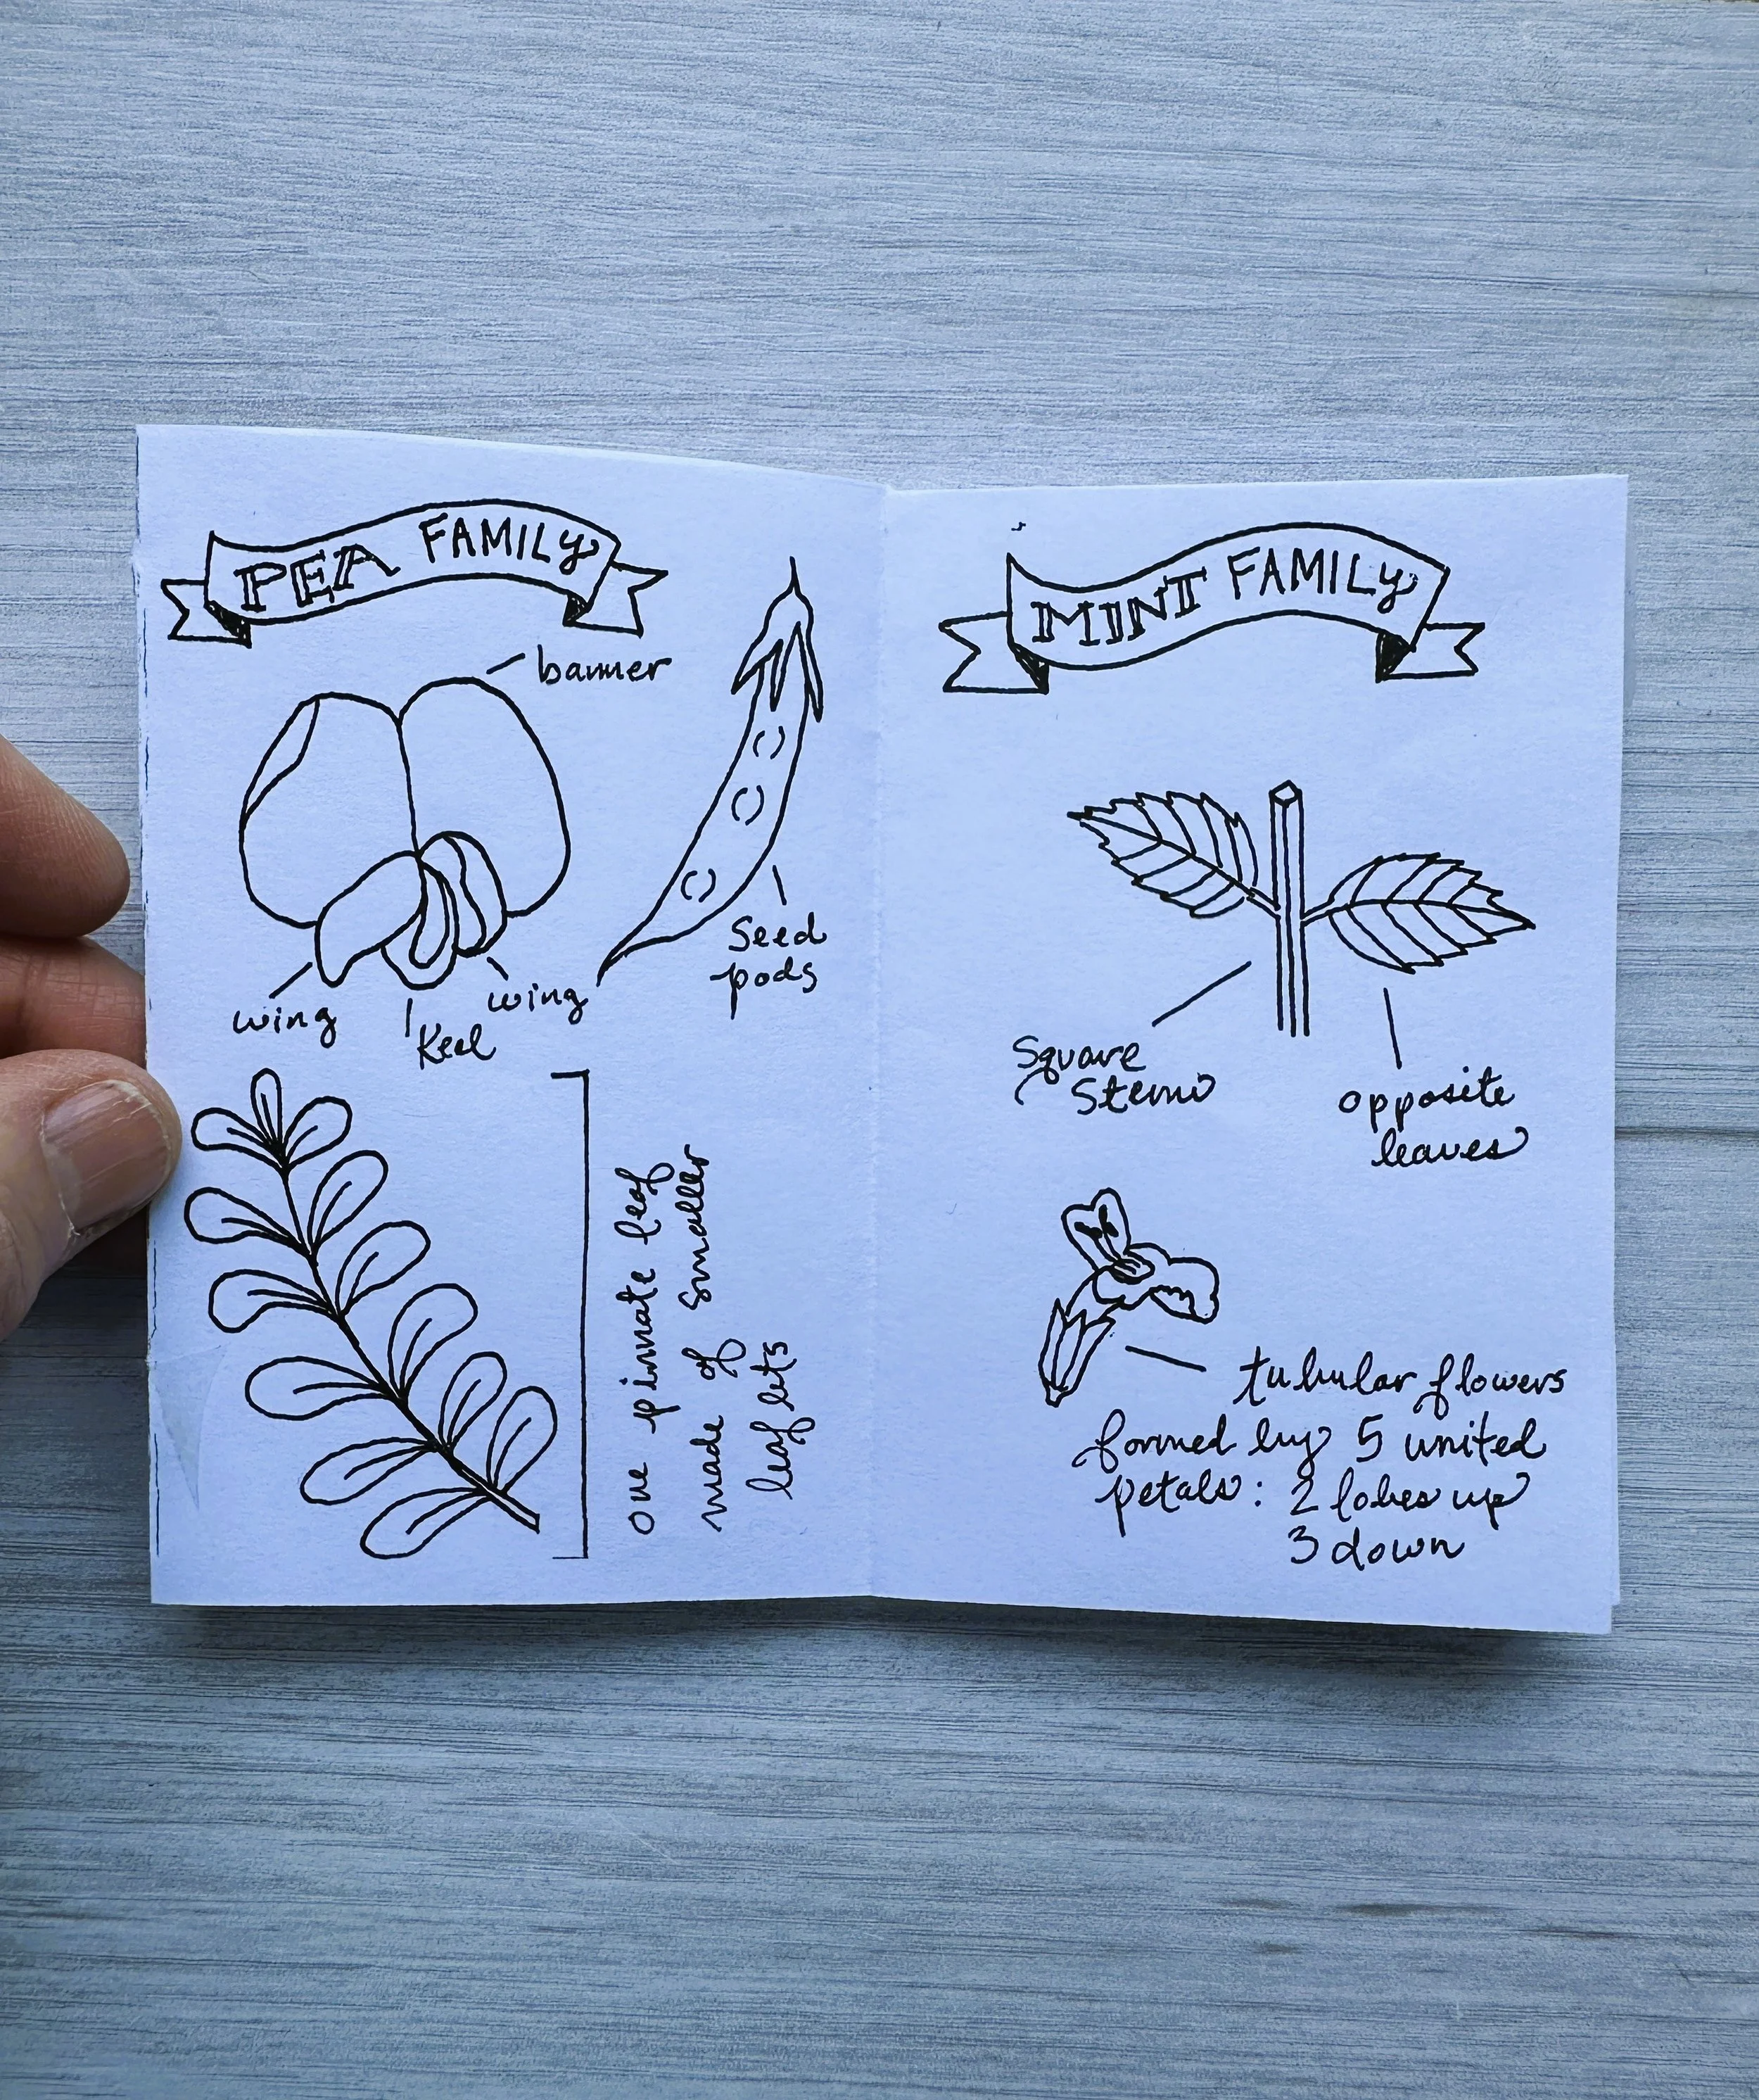 PEA FAMILY
banner
Seed
pods
wing
Keel
wing
one pinnate leaf
made of smaller
leaflets
MINT FAMILY
Square
Stems
opposite
leaves
tubular flowers
formed by 5 united
petals: 2 lobes up
3 down